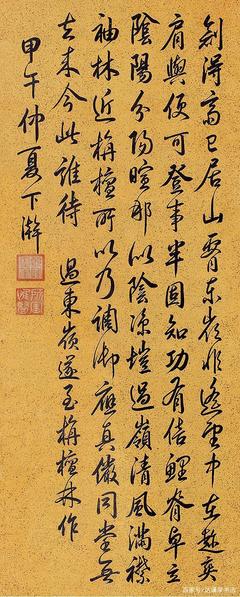 得高已居山脊東嶺非遙望中在趁爽
肩輿便可登事半固知功有倍鯉脊卓立
陰陽分陽暄那似陰涼塏過嶺清風滿襟
袖林近栴檀所以乃調御應真儼同堂無
去來今此誰待 過東嶺遂至栴檀林作
甲午仲夏下澣